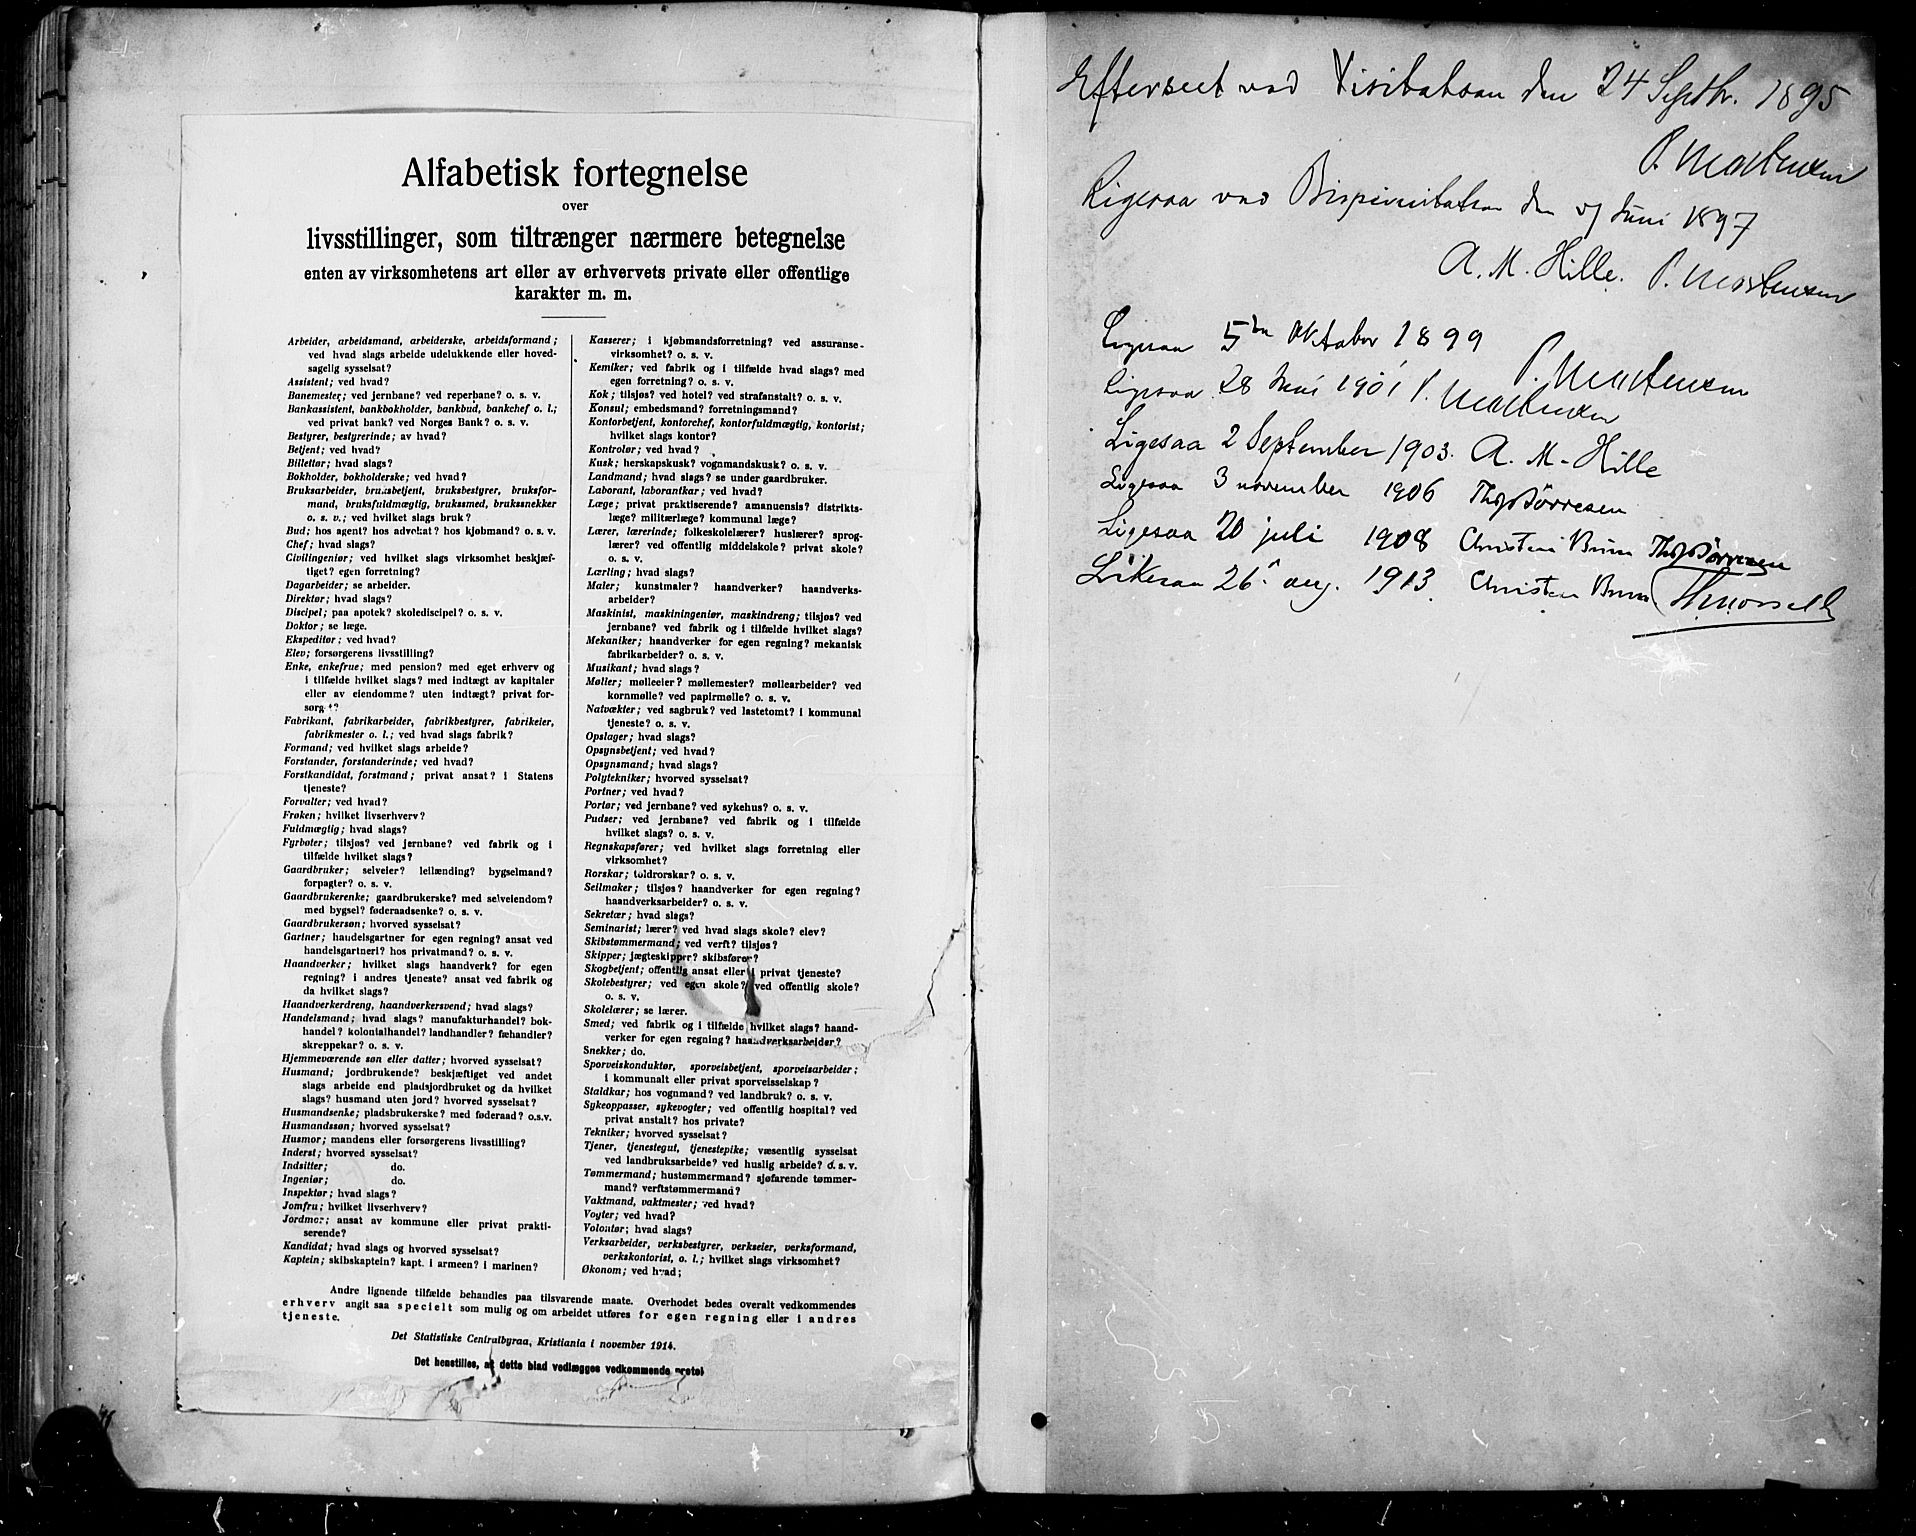 Alfabetisk fortegnelse
over
livsstillinger, som tiltrænger nærmere betegnelse
enten av virksomhetens art eller av erhvervets private eller offentlige
karakter m. m.
Arbeider, arbeidsmand, arbeiderske, arbeidsformand;
ved hvad slags arbeide udelukkende eller hoved-
sagelig sysselsat?
Assistent; ved hvad?
Banemester; ved jernbane? ved reperbane? o. s. v.
Bankassistent, bankbokholder, bankbud, bankchef o. l.;
ved privat bank? ved Norges Bank? o. s. v.
Bestyrer, bestyrerinde; av hvad?
Betjent; ved hvad?
Billettør; hvad slags?
Bokholder, bokholderske; ved hvad?
Bruksarbeider, bruksbetjent, bruksbestyrer, bruksfor-
mand, bruksfuldmægtig, brukssmed, brukssnekker
o. s. v.; ved hvilket slags bruk?
Bud; hos agent? hos advokat? hos kjøbmand? o. s. v.
Chef; hvad slags?
Civilingeniør; ved hvilket slags virksomhet beskjæf-
tiget? egen forretning?
Dagarbeider; se arbeider.
Direktør; hvad slags?
Discipel; paa apotek? skolediscipel? o. s. v.
Doktor; se læge.
Ekspeditør; ved hvad?
Elev; forsørgerens livsstilling?
Enke, enkefrue; med pension? med eget erhverv og
i tilfælde hvilket slags? med indtægt av kapitaler
eller av eiendomme? uten indtægt? privat for-
sørget?
Fabrikant, fabrikarbeider, fabrikbestyrer, fabrikeier,
fabrikmester o. l.; ved hvad slags fabrik?
Formand; ved hvilket slags arbeide?
Forstander, forstanderinde; ved hvad?
Forstkandidat, forstmand; privat ansat? i Statens
tjeneste?
Forvalter; ved hvad?
Frøken; hvilket livserhverv?
Fuldmægtig; hvad slags?
Fyrbøter; tilsjøs? ved jernbane? ved fabrik og i
tilfælde hvilket slags?
Gaardbruker; selveier? leilænding? bygselmand?
forpagter? o. s. v.
Gaardbrukerenke; gaardbrukerske? med selveiendom?
med bygsel? føderaadsenke? o. s. v.
Gaardbrukersøn; hvorved sysselsat?
Gartner; handelsgartner for egen regning? ansat ved
handelsgartneri? hos privatmand? o. s. v.
Haandverker; hvilket slags haandverk? for egen
regning? i andres tjeneste? ansat ved fabrik og
da hvilket slags?
Haandverkerdreng, haandverkersvend; hvad slags?
Handelsmand; hvad slags? manufakturhandel? bok-
handel? kolonialhandel? landhandler? fæhandler?
skreppekar? o. s. v.
Hjemmeværende søn eller datter; hvorved sysselsat?
Husmand; jordbrukende? beskjæftiget ved andet
slags arbeide end pladsjordbruket og da hvilket
slags? husmand uten jord? hvorved sysselsat?
Husmandsenke; pladsbrukerske? med føderaad? o.s.v.
Husmandssøn; hvorved sysselsat?
Husmor; mandens eller forsørgerens livsstilling?
Inderst; hvorved sysselsat?
Indsitter; do.
Ingeniør; do.
Inspektør; hvad slags?
Jomfru; hvilket livserhverv?
Jordmor; ansat av kommune eller privat prakti-
serende?
Kandidat; hvad slags og hvorved sysselsat?
Kaptein; skibskaptein? kapt. i armeen? i marinen?
Kasserer; i kjøbmandsforretning? ved assuranse-
virksomhet? o. s. v.
Kemiker; ved fabrik og i tilfælde hvad slags? med
egen forretning? o. s. v.
Kok; tilsjøs? ved hotel? ved strafanstalt? o. s. v.
Konsul; embedsmand? forretningsmand?
Kontorbetjent, kontorchef, kontorfuldmægtig, kontorist;
hvilket slags kontor?
Kontrolør; ved hvad?
Kusk; herskapskusk? vognmandskusk? o. s. v.
Landmand; hvad slags? se under gaardbruker.
Laborant, laborantkar; ved hvad?
Læge; privat praktiserende? amanuensis? distrikts-
læge? militærlæge? kommunal læge?
Lærer, lærerinde; folkeskolelærer? huslærer? sprog-
lærer? ved offentlig middelskole? privat skole?
o. s. v.
Lærling; hvad slags?
Maler; kunstmaler? haandverker? haandverks-
arbeider?
Maskinist, maskiningeniør, maskindreng; tilsjøs? ved
jernbane? ved fabrik og i tilfælde hvilket slags?
Mekaniker; haandverker for egen regning? mekanisk
fabrikarbeider? o. s. v.
Musikant; hvad slags?
Møller; mølleeier? møllemester? møllearbeider? ved
kornmølle? ved papirmølle? o. s. v.
Natvækter; ved sagbruk? ved lastetomt? i kommunal
tjeneste? o. s. v.
Opslager; hvad slags?
Opsynsbetjent; ved hvad?
Opsynsmand; hvad slags?
Polytekniker; hvorved sysselsat?
Portner; ved hvad?
Portør; ved jernbane? ved sykehus? o. s. v.
Pudser; ved jernbane? ved fabrik og i tilfælde
hvilket slags? o. s. v.
Regnskapsfører; ved hvilket slags forretning eller
virksomhet?
Rorskar; toldrorskar? o. s. v.
Seilmaker; tilsjøs? haandverker for egen regning?
haandverksarbeider? o. s. v.
Sekretær; hvad slags?
Seminarist; lærer? ved hvad slags skole? elev?
Skibstømmermand; ved verft? tilsjøs?
Skipper; jægteskipper? skibsfører?
Skogbetjent; offentlig ansat eller i privat tjeneste?
Skolebestyrer; ved egen skole? ved offentlig skole?
o. s. v.
Skolelærer; se lærer.
Smed; ved fabrik og i tilfælde hvilket slags? haand-
verker for egen regning? haandverksarbeider?
Snekker; do.
Sporveiskonduktør, sporveisbetjent, sporveisarbeider;
i kommunalt eller privat sporveisselskap?
Staldkar; hos vognmand? ved landbruk? o. s. v.
Sykeoppasser, sykevogter; ved offentlig hospital? ved
privat anstalt? hos private?
Tekniker; hvorved sysselsat?
Tjener, tjenestegut, tjenestepike; væsentlig sysselsat
ved landbruksarbeide? ved huslig arbeide? o. s. v.
Tømmermand; hustømmermand? sjøfarende tømmer-
mand? verftstømmermand?
Vaktmand, vaktmester; ved hvad?
Vogter; ved hvad?
Volontør; hvad slags?
Verksarbeider, verksbestyrer, verkseier, verksformand,
verkskontorist, o. l.; hvilket slags virksomhet?
Økonom; ved hvad;
Andre lignende tilfælde behandles paa tilsvarende maate. Overhodet bedes overalt vedkommendes
erhverv angit saa specielt som mulig og om arbeidet utføres for egen regning eller i andres
tjeneste.
Det Statistiske Centralbyraa, Kristiania i november 1914.
Det henstilles, at dette blad vedlægges vedkommende protol
Efterseet ved Visitatsen den 24 Septbr. 1895
P. Mortensen
Ligesaa ved Bispevisitatsen den Juni 1897
A. M. Hille. P. Mortensen
Ligesaa 5te Oktober 1899
P. Mortensen
Ligesaa 28 Juni 1901 P. Mortensen
Ligesaa 2 September 1903. A. M. Hille
Ligesaa 3 november 1906 Th Børresen
Ligesaa 20 juli 1908 Christen Brun Th Børresen
Likesaa 26 aug. 1913. Christen Brun